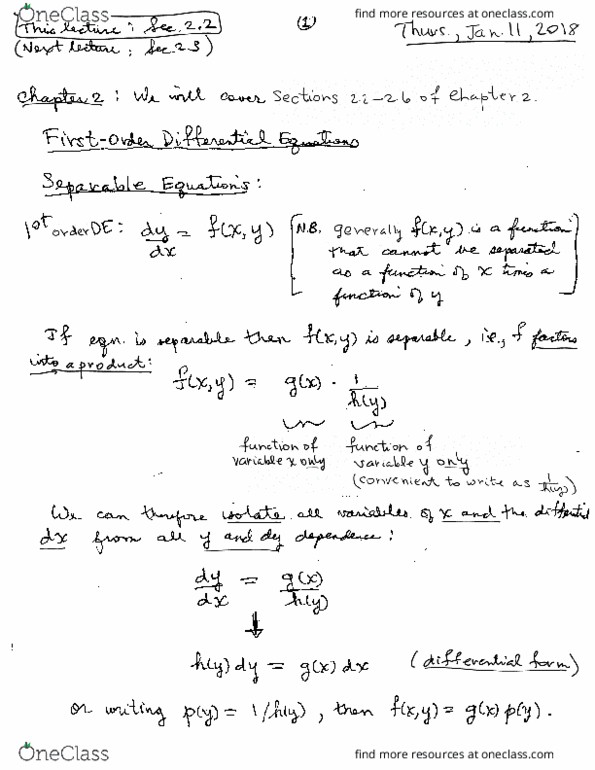 OneClass
find more resources at oneclass.com
This lecture: Sec. 2.2
(1)
Thurs., Jan. 11, 2018
(Next lecture: Sec. 2.3)
Chapter 2: We will cover Sections 2.2-2.6 of Chapter 2.
First-Order Differential Equations
Separable Equations:
1st order DE: dy/dx = f(x,y) [N.B. generally f(x,y) is a function
that cannot be separated
as a function of x times a
function of y]
If eqn. is separable then f(x,y) is separable, i.e., f factors
into a product:
f(x,y) = g(x) · 1/h(y)
function of variable x only
function of variable y only
(convenient to write as 1/h(y))
We can therefore isolate all variables of x and the differential
dx from all y and dy dependence:
dy/dx = g(x)/h(y)
↓
h(y) dy = g(x) dx (differential form)
or writing p(y) = 1/h(y), then f(x,y) = g(x) p(y).
OneClass
find more resources at oneclass.com